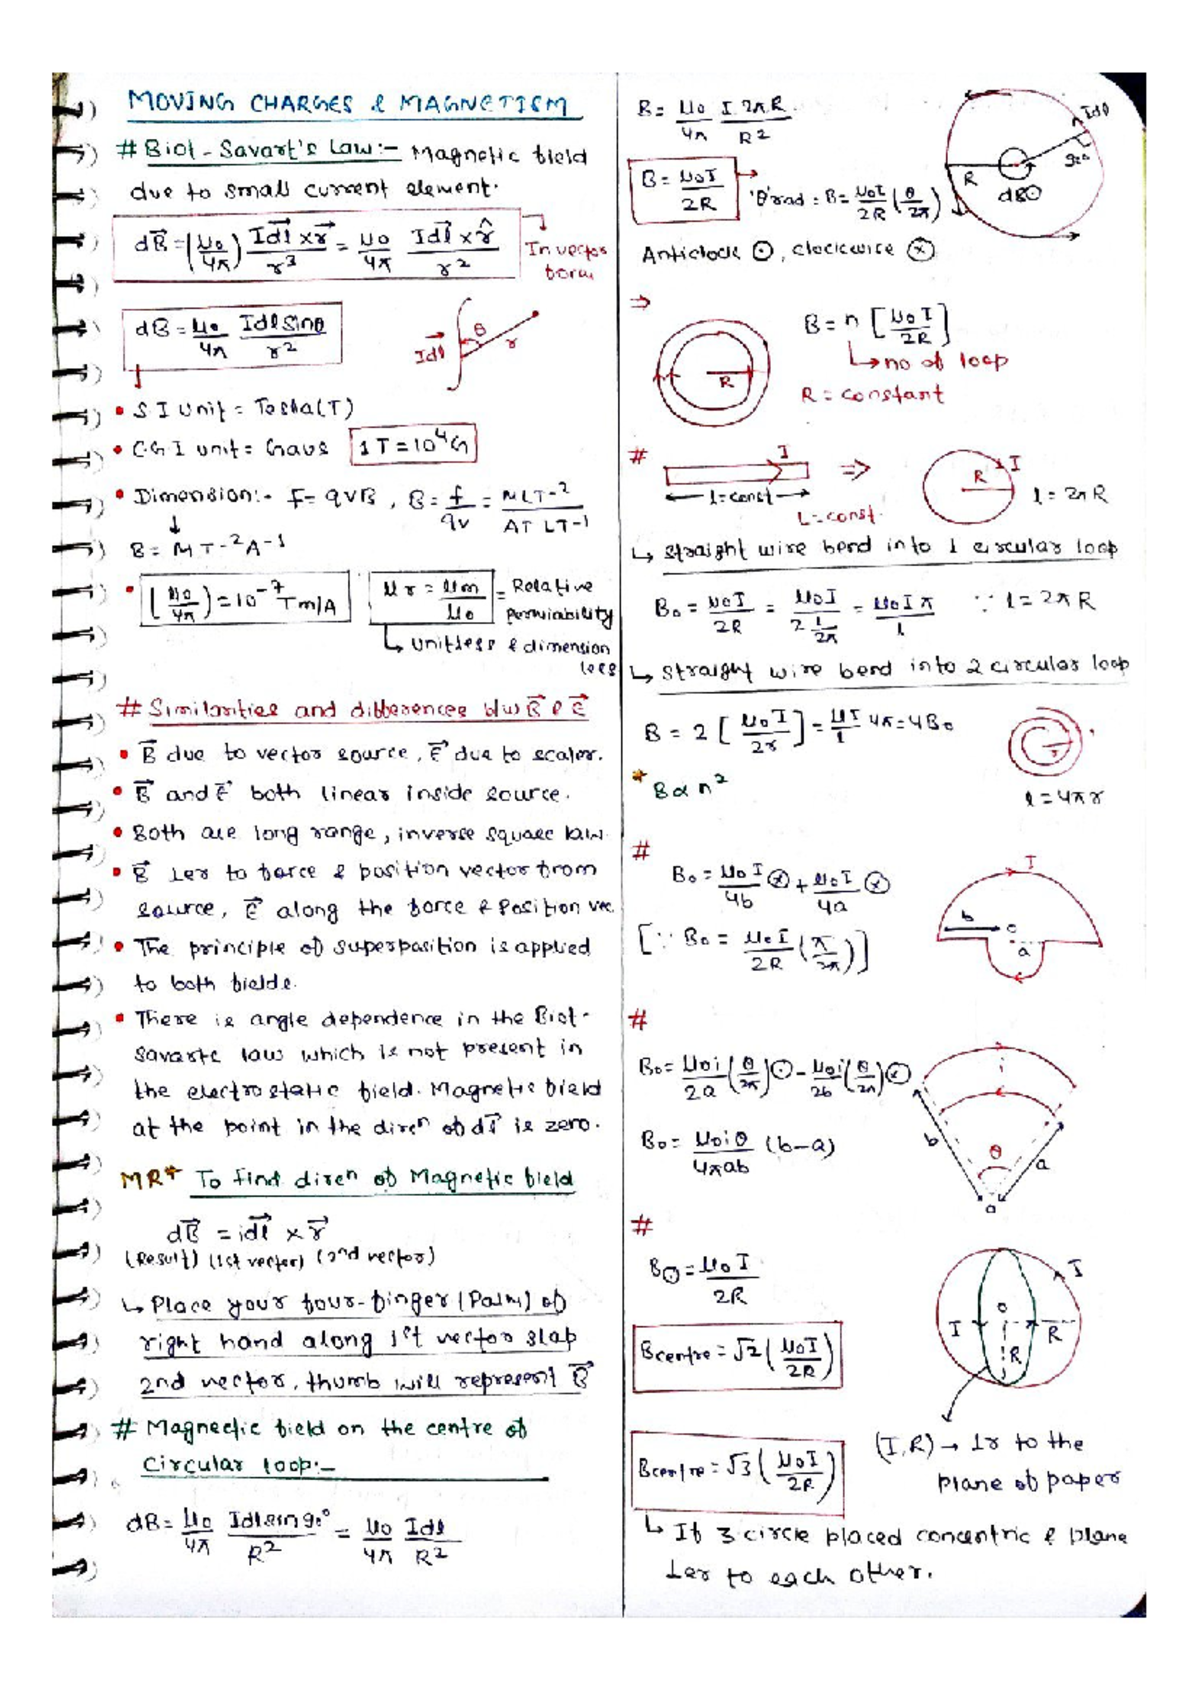 MOVING CHARGES & MAGNETISM
# Biot-Savart's Law:- Magnetic field
due to small current element.
dB⃗ = (μ0/4π) Idl⃗ × r⃗/r³ = μ0/4π Idl⃗ × r̂/r²
In vector
form
dB = μ0/4π Idl sinθ/r²
Idl⃗ θ r
• S I Unit = Tesla (T)
• C.G.I unit = Gaus 1T = 10⁴G
• Dimension:- F = qVB , B = f/qv = MLT-2/AT LT-1
B = MT-2A-1
• (μ0/4π) = 10-7 Tm/A μr = μm/μ0 = Relative
Permiability
↳ unitless & dimension
less
# Similarities and differences b/w B⃗ & E⃗
• B⃗ due to vector source, E⃗ due to scaler.
• B⃗ and E⃗ both linear inside source.
• Both are long range, inverse square law.
• B⃗ ⊥er to force & position vector from
source, E⃗ along the force & Position vec.
• The principle of superposition is applied
to both fields.
• There is angle dependence in the Biot-
Savarts law which is not present in
the electrostatic field. Magnetic field
at the point in the diren of dl⃗ is zero.
MR* To find diren of Magnetic field
dB⃗ = idl⃗ × r⃗
(Result) (1st vector) (2nd vector)
↳ Place your four-finger (Palm) of
right hand along 1st vector slap
2nd vector, thumb will represent B⃗
# Magnectic field on the centre of
Circular loop:-
dB = μ0/4π Idl sin90°/R² = μ0/4π Idl/R²
B = μ0/4π I.2πR/R²
B = μ0I/2R → 'θ'rad : B = μ0I/2R (θ/2π)
Idl 90° R dB⊙
Anticlock ⊙, clockwise ⊗
⇒ B = n [μ0I/2R]
↳ no of loop
R = constant
R
# I ⇒ R I
l = const l = 2πR
L = const.
↳ Straight wire bend into 1 circular loop
B0 = μ0I/2R = μ0I/2 l/2π = μ0Iπ/l ∵ l = 2πR
↳ Straight wire bend into 2 circular loop
B = 2 [μ0I/2r] = μI/l 4π = 4B0
r
* B α n² l = 4πr
# I
B0 = μ0I/4b ⊗ + μ0I/4a ⊗
b o a
[∵ B0 = μ0I/2R (π/2π)]
#
B0 = μ0i/2a (θ/2π)⊙ - μ0i/2b (θ/2π)⊗
B0 = μ0iθ/4πab (b-a)
b θ a
a
#
B⊙ = μ0I/2R
I O I R R
Bcentre = √2 (μ0I/2R)
(I,R) → ⊥r to the
plane of paper
Bcentre = √3 (μ0I/2R)
↳ If 3 circle placed concentric & plane
⊥er to each other.